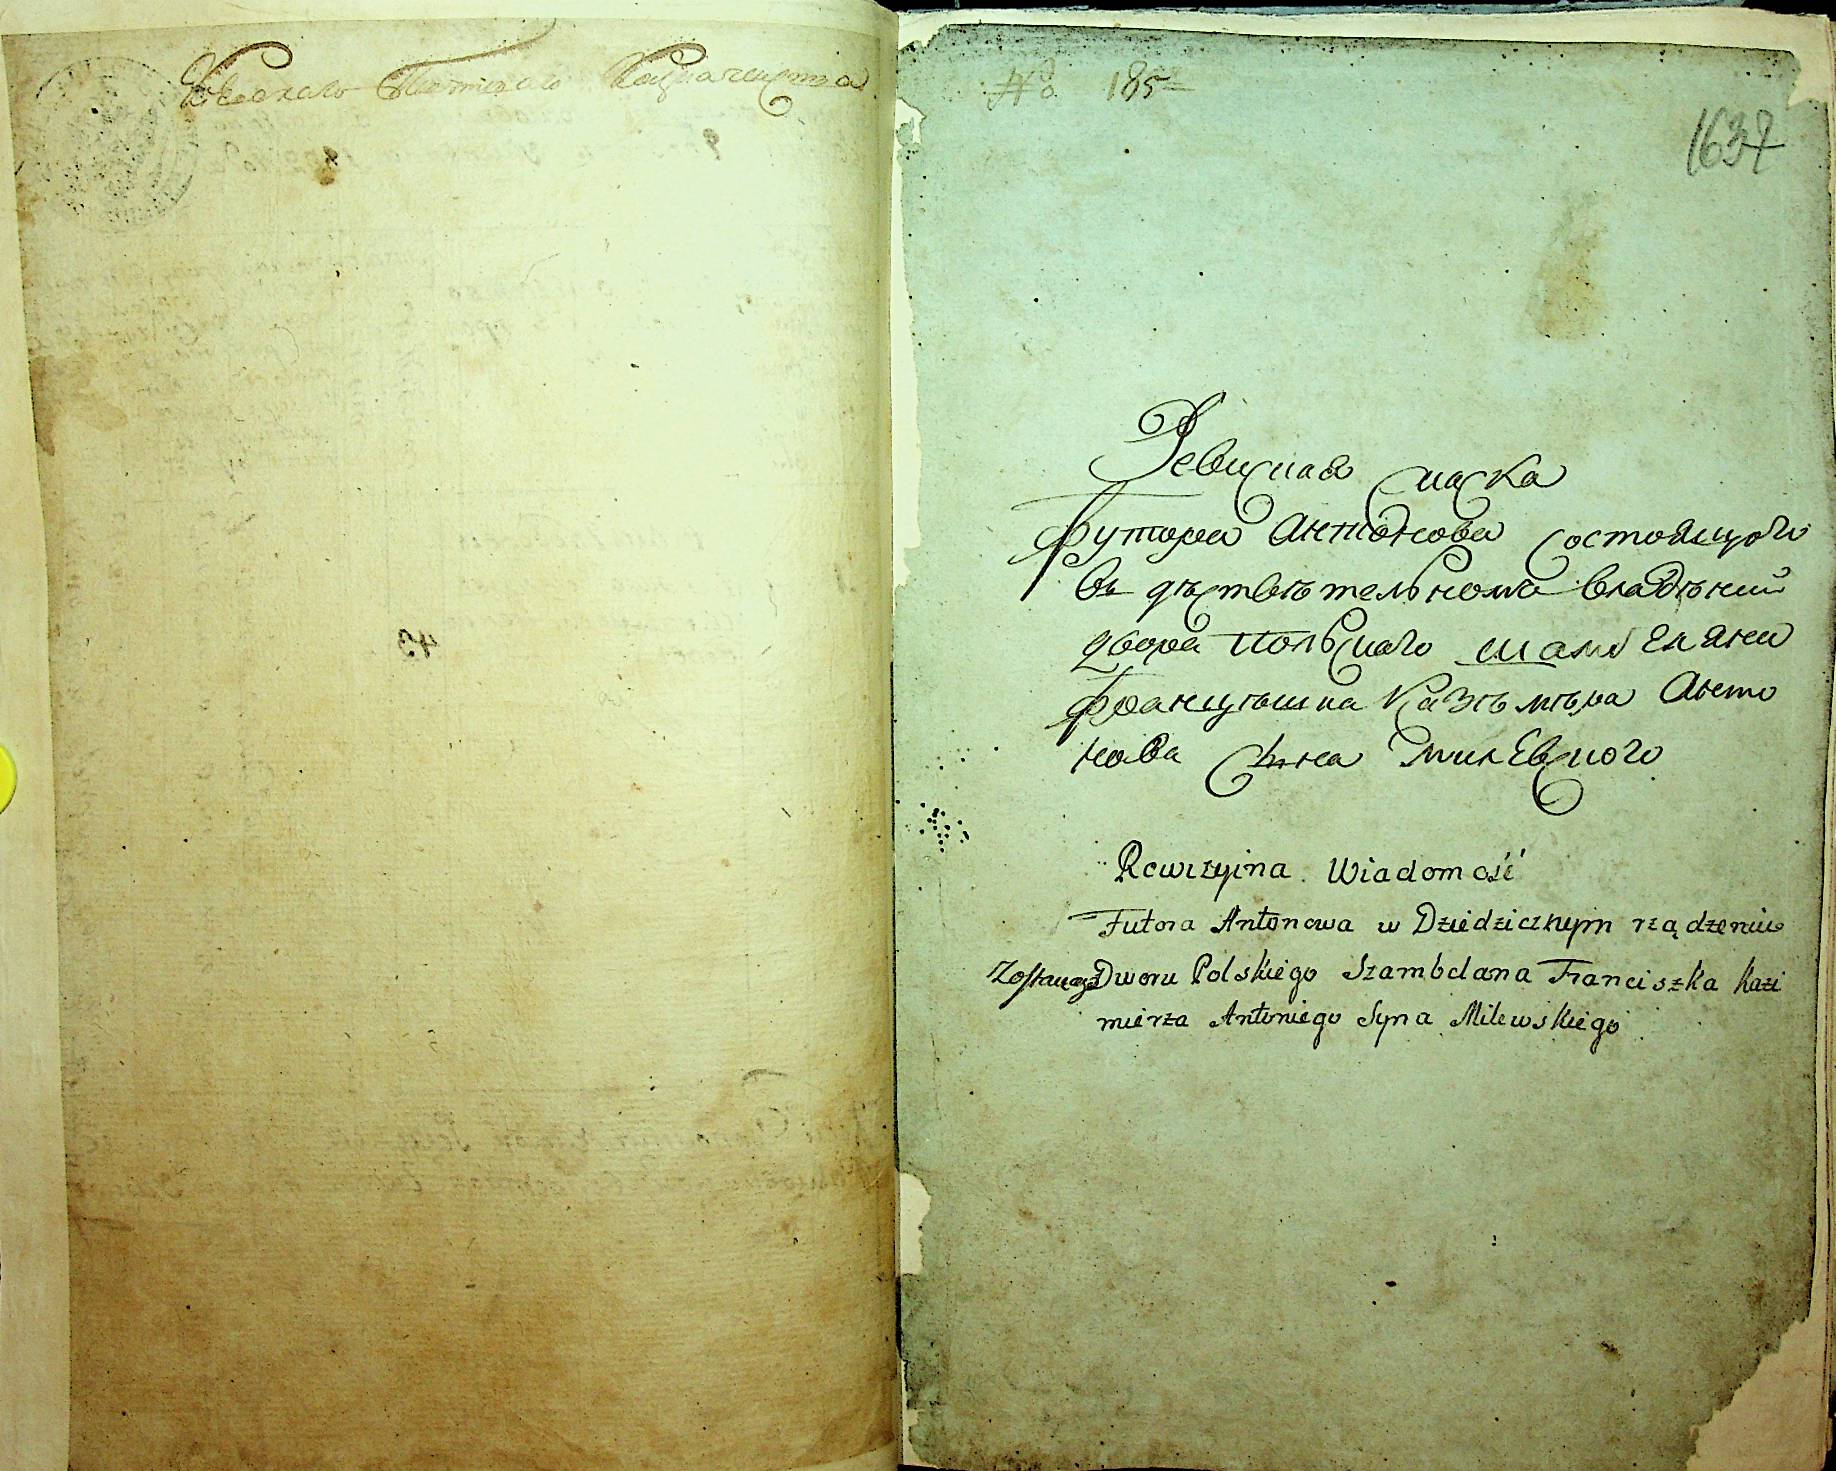 № 185
1637
Ревиская скаска
футора антонова состоящого
въ дѣствѣтельномъ владѣний
двора полскаго шамбеляна
францѣшка Казѣмѣра Анто
нова сына милевского
Rewizyina Wiadomość
Futora Antonowa w Dziedzicznym rządzeniu
Zostaiącego Dworu Polskiego Szambelana Franciszka Kazi
mierza Antoniego Syna Milewskiego